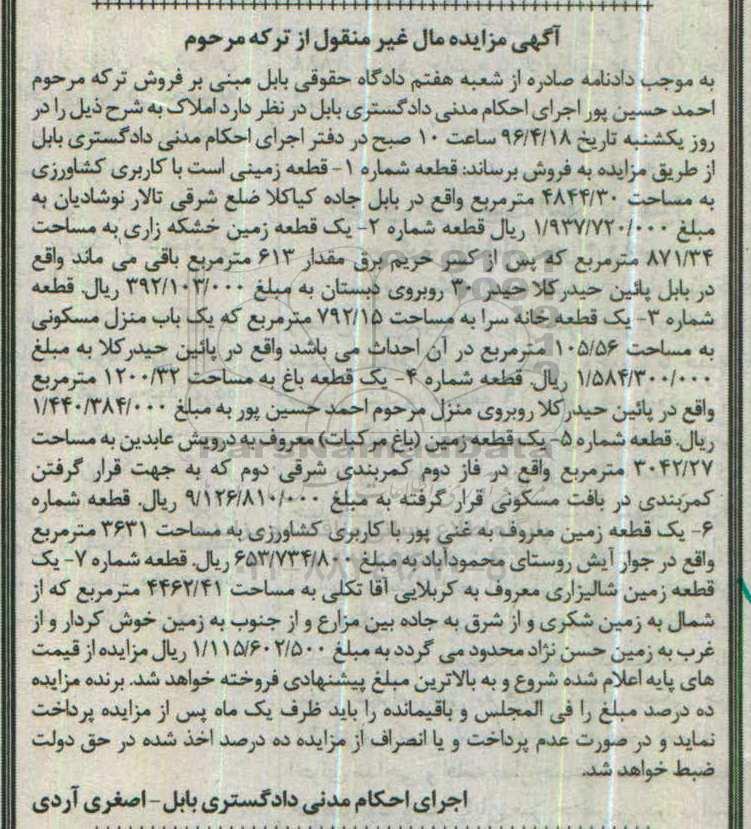 آگهی مزایده مال غیر منقول از ترکه مرحوم
به موجب دادنامه صادره از شعبه هفتم دادگاه حقوقی بابل مبنی بر فروش ترکه مرحوم
احمد حسین پور اجرای احکام مدنی دادگستری بابل در نظر دارد املاک به شرح ذیل را در
روز یکشنبه تاریخ ۹۶/۴/۱۸ ساعت ۱۰ صبح در دفتر اجرای احکام مدنی دادگستری بابل
از طریق مزایده به فروش برساند: قطعه شماره ۱- قطعه زمینی است با کاربری کشاورزی
به مساحت ۴۸۴۴/۳۰ مترمربع واقع در بابل جاده کیاکلا ضلع شرقی تالار نوشادیان به
مبلغ ۱/۹۳۷/۷۲۰/۰۰۰ ریال قطعه شماره ۲- یک قطعه زمین خشکه زاری به مساحت
۸۷۱/۳۴ مترمربع که پس از کسر حریم برق مقدار ۶۱۳ مترمربع باقی می ماند واقع
در بابل پائین حیدرکلا حیدر ۳۰ روبروی دبستان به مبلغ ۳۹۲/۱۰۳/۰۰۰ ریال. قطعه
شماره ۳- یک قطعه خانه سرا به مساحت ۷۹۲/۱۵ مترمربع که یک باب منزل مسکونی
به مساحت ۱۰۵/۵۶ مترمربع در آن احداث می باشد واقع در پائین حیدرکلا به مبلغ
۱/۵۸۴/۳۰۰/۰۰۰ ریال. قطعه شماره ۴- یک قطعه باغ به مساحت ۱۲۰۰/۳۲ مترمربع
واقع در پائین حیدرکلا روبروی منزل مرحوم احمد حسین پور به مبلغ ۱/۴۴۰/۳۸۴/۰۰۰
ریال. قطعه شماره ۵- یک قطعه زمین (باغ مرکبات) معروف به درویش عابدین به مساحت
۳۰۴۲/۲۷ مترمربع واقع در فاز دوم کمربندی شرقی دوم که به جهت قرار گرفتن
کمربندی در بافت مسکونی قرار گرفته به مبلغ ۹/۱۲۶/۸۱۰/۰۰۰ ریال. قطعه شماره
۶- یک قطعه زمین معروف به غنی پور با کاربری کشاورزی به مساحت ۳۶۳۱ مترمربع
واقع در جوار آیش روستای محمودآباد به مبلغ ۶۵۳/۷۳۴/۸۰۰ ریال. قطعه شماره ۷- یک
قطعه زمین شالیزاری معروف به کربلایی آقا تکلی به مساحت ۴۴۶۲/۴۱ مترمربع که از
شمال به زمین شکری و از شرق به جاده بین مزارع و از جنوب به زمین خوش کردار و از
غرب به زمین حسن نژاد محدود می گردد به مبلغ ۱/۱۱۵/۶۰۲/۵۰۰ ریال مزایده از قیمت
های پایه اعلام شده شروع و به بالاترین مبلغ پیشنهادی فروخته خواهد شد. برنده مزایده
ده درصد مبلغ را فی المجلس و باقیمانده را باید ظرف یک ماه پس از مزایده پرداخت
نماید و در صورت عدم پرداخت و یا انصراف از مزایده ده درصد اخذ شده در حق دولت
ضبط خواهد شد.
اجرای احکام مدنی دادگستری بابل - اصغری آردی
ParsNamadData